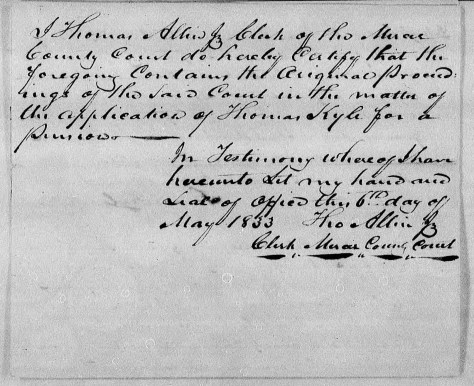 I Thomas Allin Jr Clerk of the Mercer
County Court do hereby Certify that the
foregoing Contains the Original Proceed-
ings of the Said Court in the matter of
the application of Thomas Kyle for a
Pension
In Testimony whereof I have
hereunto Set my hand and
Seal of office this 6th day of
May 1833 Tho Allin Jr
Clerk Mercer County Court